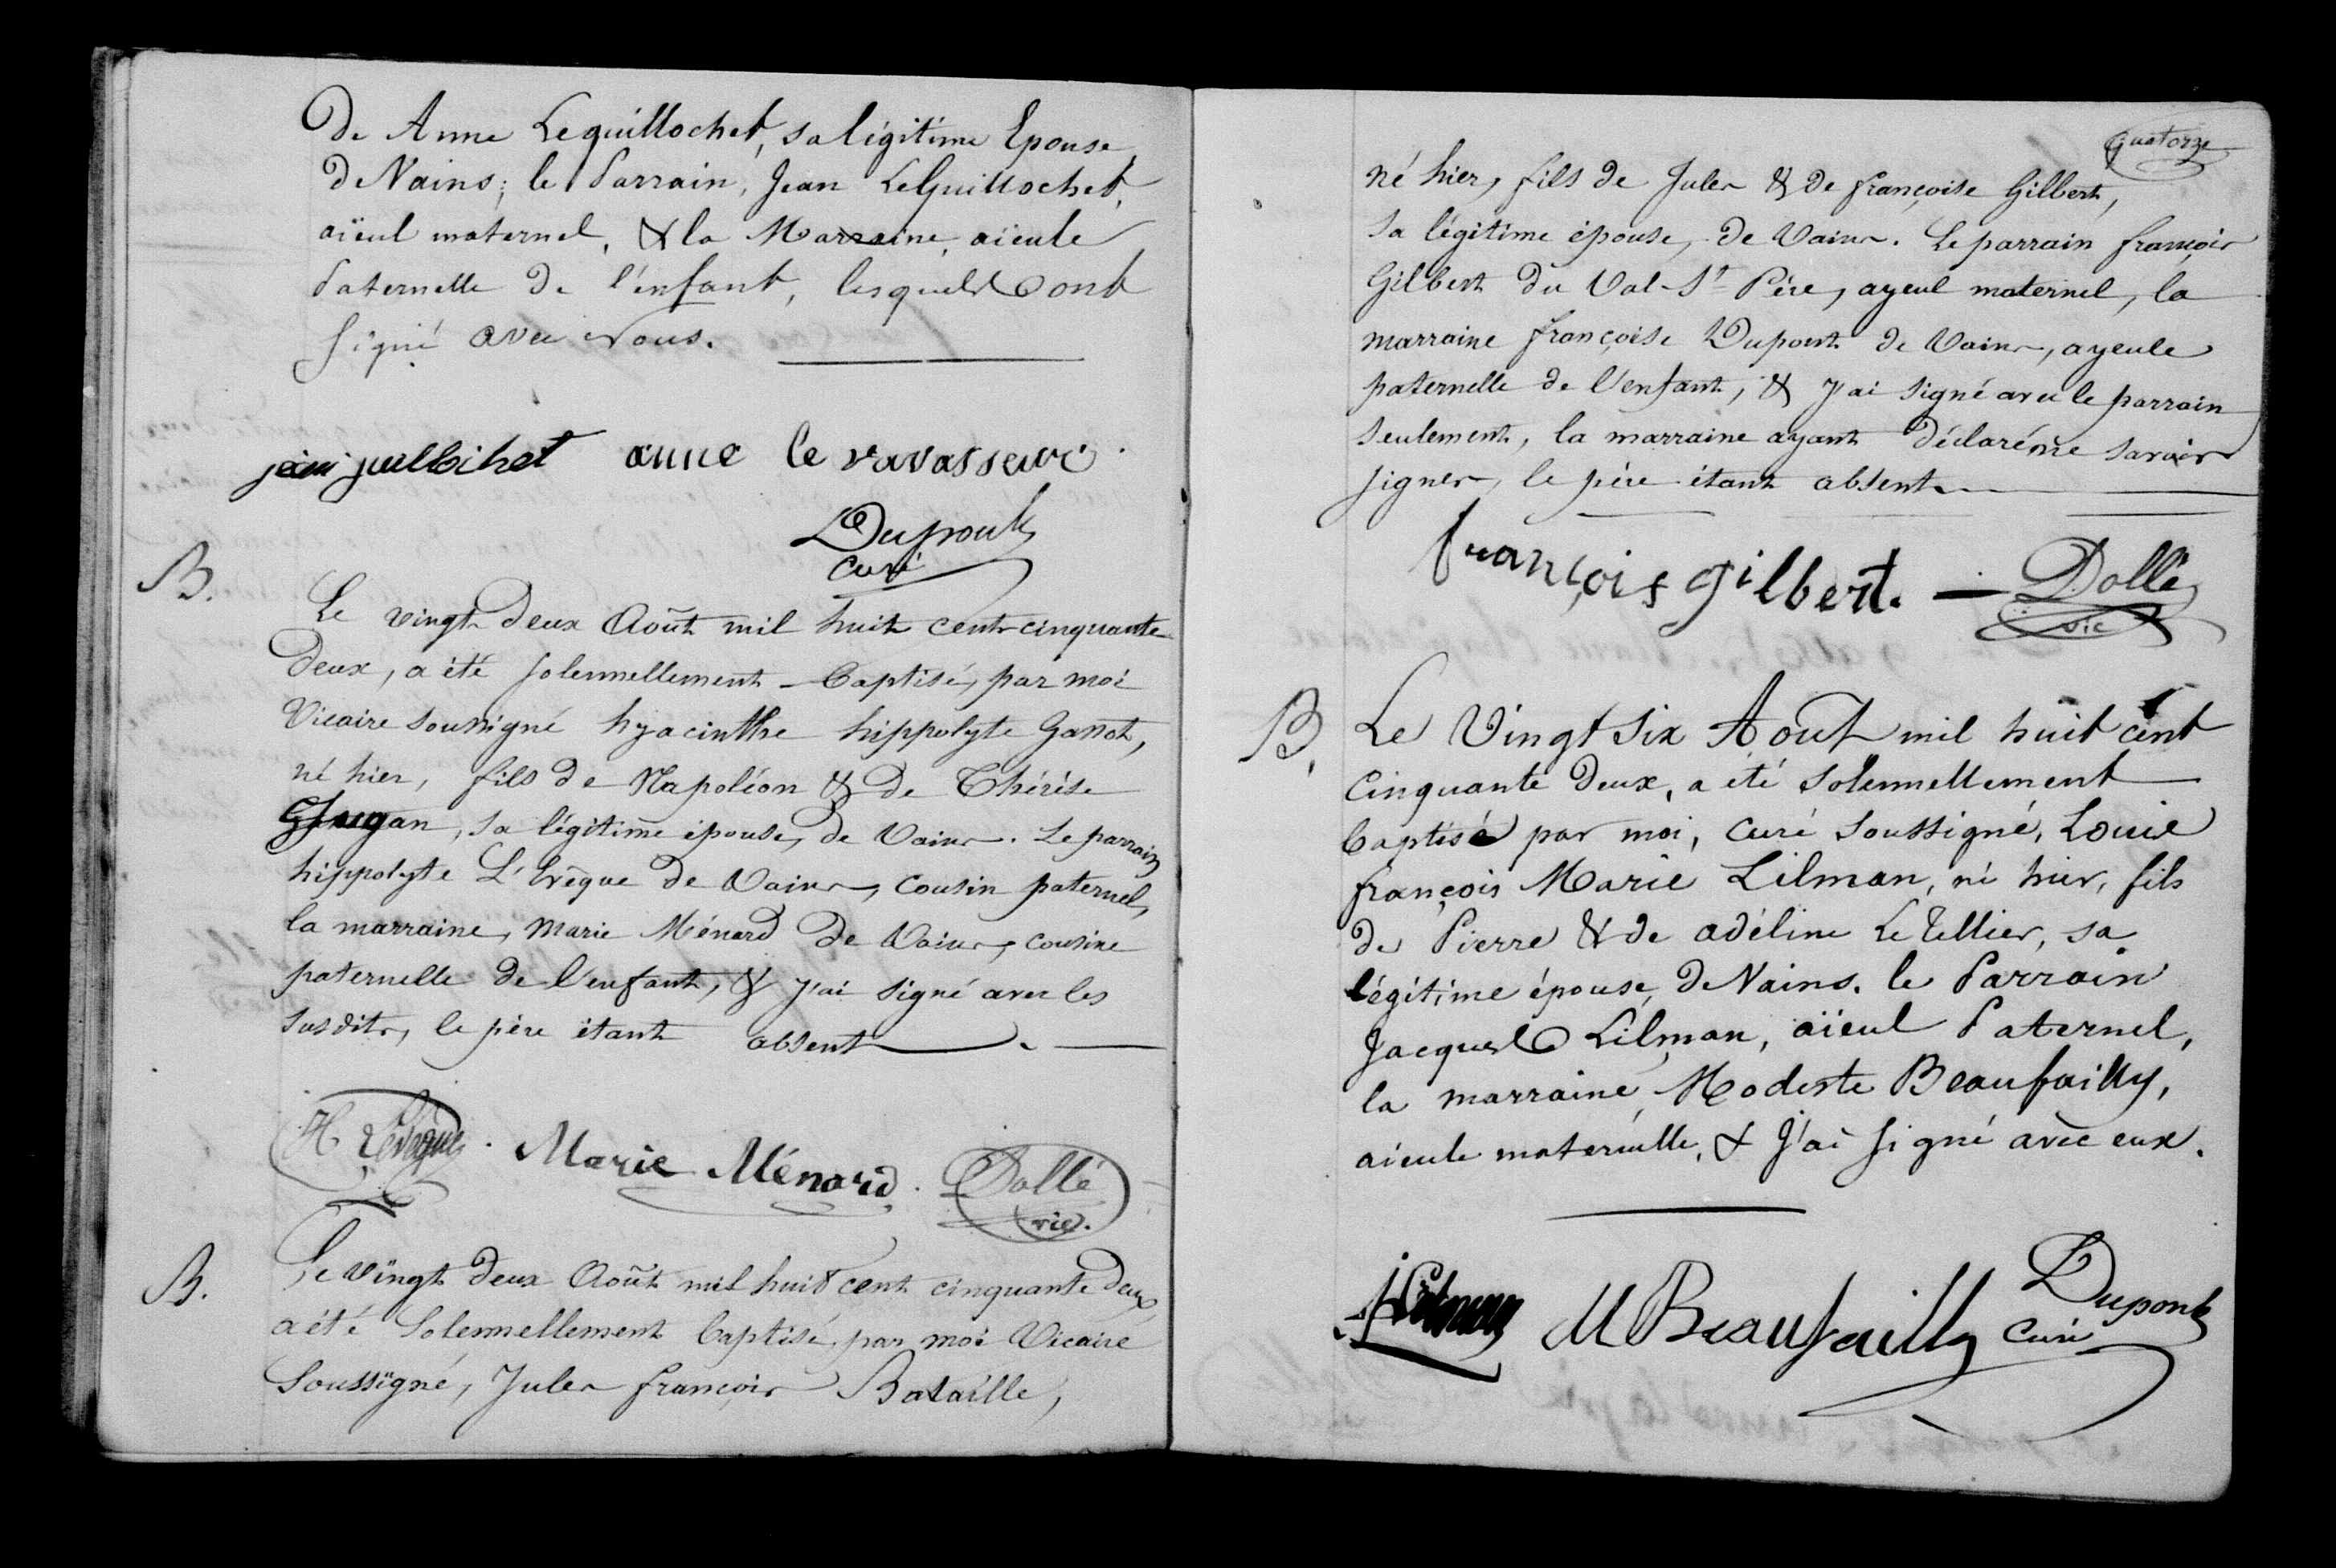 De Anne Leguillochet, sa légitime Epouse,
De Vains; le Parrain, Jean LeGuillochet,
aïeul maternel, & la Marraine, aïeule
Paternelle De l'enfant, lesquels ont
Signé avec Nous.
anne le vavasseur.
Dupont
curé
B.
Le vingt Deux Août mil huit cent cinquante
Deux, a été solennellement baptisé, par moi
Vicaire soussigné hyacinthe hippolyte Ganot,
né hier, fils De Napoléon & De Thérèse
Gaugan, sa légitime épouse, De Vains. Le parrain
hippolyte L'Evêque De Vains, cousin paternel,
la marraine, Marie Ménard De Vains, cousine
paternelle De l'enfant, & j'ai signé avec les
susdits, le père étant absent.
H Levêque. Marie Ménard. Dollé
vic.
B.
Le vingt Deux Août mil huit cent cinquante Deux
a été Solennellement baptisé par moi Vicaire
Soussigné, Jules françois Bataille,
quatorze
né hier, fils De Jules & De françoise Gilbert,
sa légitime épouse, De Vains. Le parrain françois
Gilbert Du Val-St Père, ayeul maternel, la
marraine françoise Dupont De Vains, ayeule
paternelle De l'enfant, & j'ai signé avec le parrain
seulement, la marraine ayant Déclaré ne savoir
signer, le père étant absent.
françois gilbert. Dollé
vic
B.
Le Vingt six Août mil huit cent
Cinquante Deux, a été Solennellement
baptisé par moi, curé soussigné, Louis
françois Marie Lilman, né hier, fils
De Pierre & De adéline Le Tellier, sa
légitime épouse, De Vains. le Parrain
Jacques Lilman, aïeul Paternel,
la marraine, Modeste Beaufailly,
aieule maternelle, & J'ai signé avec eux.
M Beaufailly Dupont
Curé